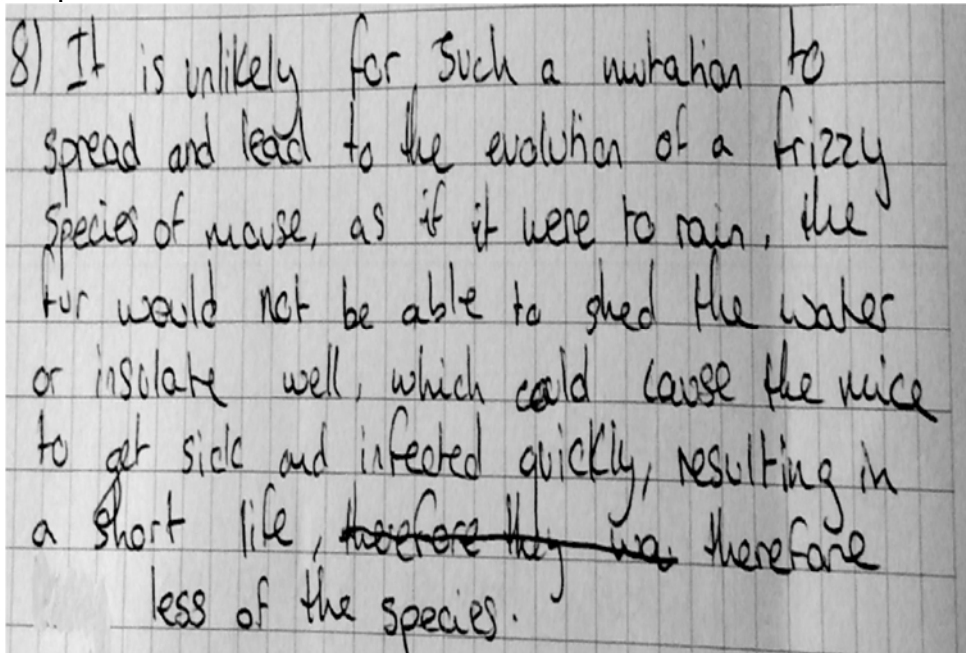 8) It is unlikely for such a mutation to
spread and lead to the evolution of a frizzy
species of mouse, as if it were to rain, the
fur would not be able to shed the water
or insulate well, which could cause the mice
to get sick and infected quickly, resulting in
a short life, therefore they wo therefore
less of the species.